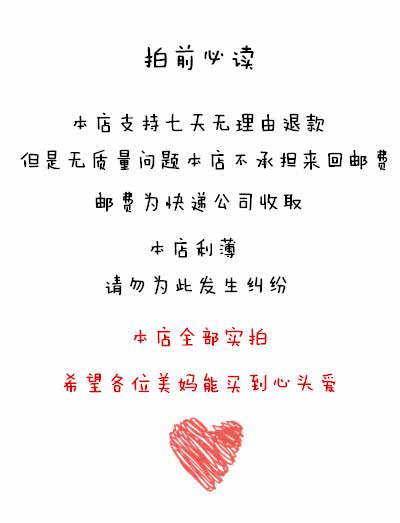 拍前必读
本店支持七天无理由退款
但是无质量问题本店不承担来回邮费
邮费为快递公司收取
本店利薄
请勿为此发生纠纷
本店全部实拍
希望各位美妈能买到心头爱